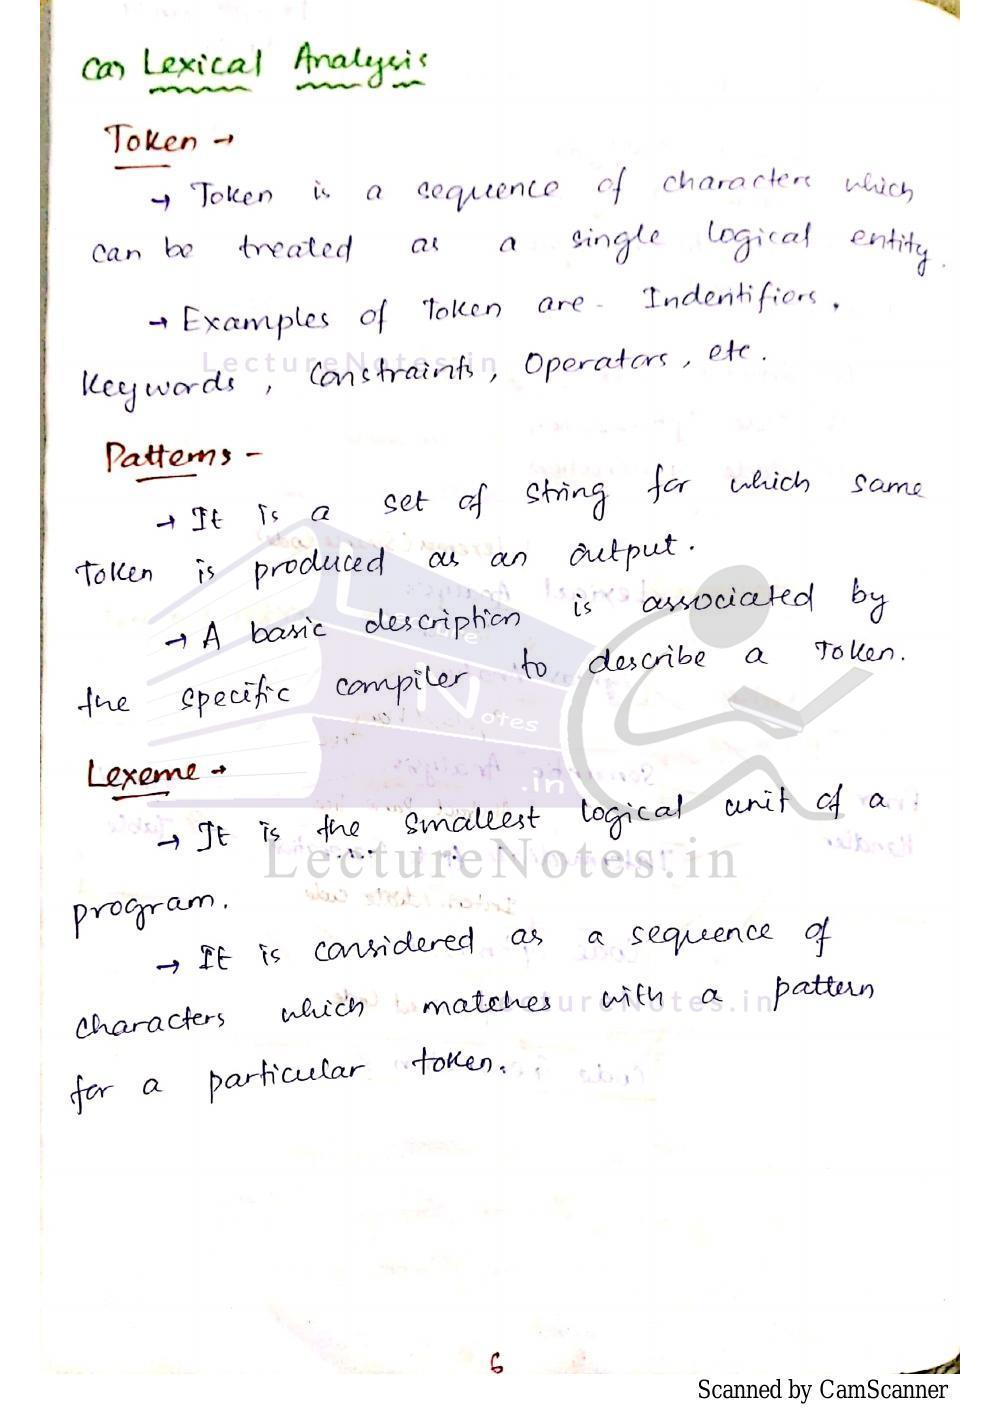 (a) Lexical Analysis
Token →
→ Token is a sequence of characters which
can be treated as a single logical entity.
→ Examples of Token are - Indentifiors,
LectureNotes.in
Keywords, Constraints, Operators, etc.
Patterns -
→ It is a set of string for which same
Token is produced as an output.
→ A basic description is associated by
the specific compiler to describe a Token.
Lecture
Notes
.in
Lexeme →
→ It is the smallest logical unit of a
LectureNotes.in
program.
→ It is considered as a sequence of
characters which matches with a pattern
LectureNotes.in
for a particular token.
6
Scanned by CamScanner